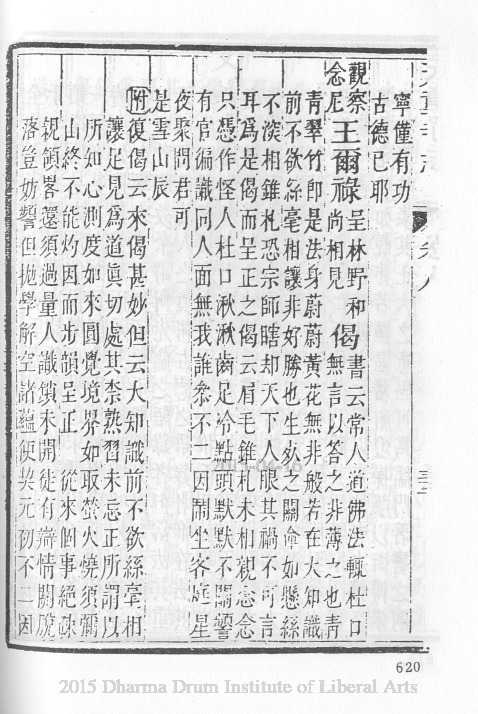 寧僅有功
古德已耶
觀察念尼王爾祿呈林野和尚相見偈書云常人道佛法輒杜口無言以答之非薄之也青
青翠竹即是法身蔚蔚黃花無非般若在大知識
前不欲絲毫相讓非好勝也生死之關命如懸絲
不湥相錐札恐宗師瞎却天下人眼其禍不可言
耳爲是偈而呈正之偈云眉毛錐札未相親念念
只憑作怪人杜口湫湫齒足冷點頭默默不關
有官徧識同人面無我誰叅不二因鬧坐客庭星
夜聚問君可
是雪山辰
附復偈云來偈甚妙但云大知識前不欲絲毫相
讓足見爲道眞切處其柰熟習未忘正所謂以
所知心測度如來圓覺境界如取螢火燒須彌
山終不能灼因而步韻呈正 從來個事絕疎
親領畧還須過量人識鎖未開徒有辯情關脫
落豈妨但拋學解空諸蘊便契元初不二因
620
2015 Dharma Drum Institute of Liberal Arts